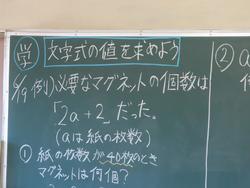 学 文字式の値を求めよう
6/9 例1)必要なマグネットの個数は
「2a+2」だった。
(aは紙の枚数)
① 紙の枚数が40枚のとき
マグネットは何個?
② a
何